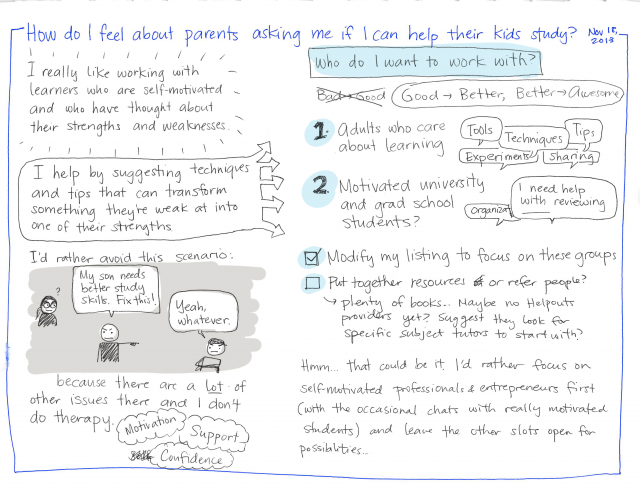 How do I feel about parents asking me if I can help their kids study?
Nov 18, 2013
I really like working with
learners who are self-motivated
and who have thought about
their strengths and weaknesses.
I help by suggesting techniques
and tips that can transform
something they're weak at into
one of their strengths
I'd rather avoid this scenario:
?
My son needs
better study
skills. Fix this!
Yeah,
whatever.
because there are a lot of
other issues there and I don't
do therapy.
Motivation
Support
Confidence
Who do I want to work with?
Bad → Good
Good → Better, Better → Awesome
1. Adults who care
about learning
Tools
Techniques
Tips
Experiments
Sharing
2. Motivated university
and grad school
students?
Organizat
I need help
with reviewing
Modify my listing to focus on these groups
Put together resources or refer people?
↳ plenty of books... Maybe no Helpouts
providers yet? Suggest they look for
specific subject tutors to start with?
Hmm... that could be it. I'd rather focus on
self-motivated professionals & entrepreneurs first
(with the occasional chats with really motivated
students) and leave the other slots open for
possibilities...